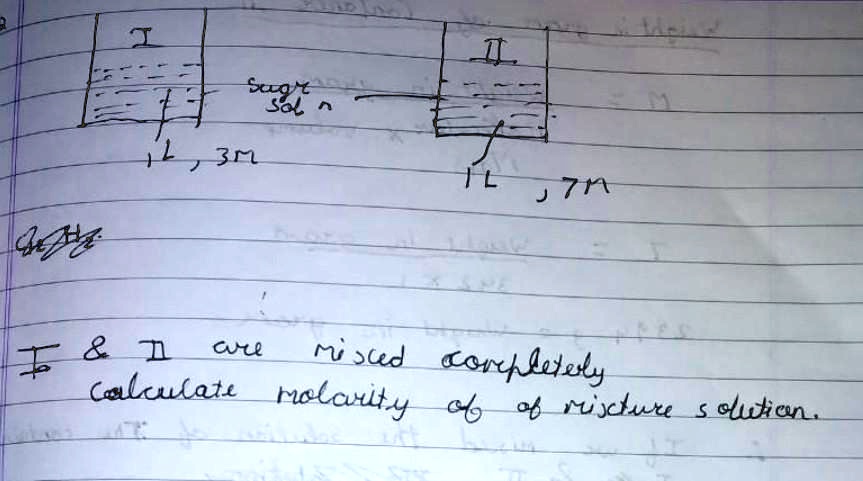 I
II
sugr
sol n
1L, 3M
1L, 7M
I & II are mixed completely
Calculate molarity of of mixture solution.